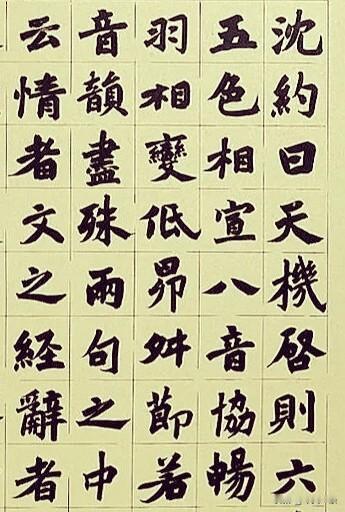 沈約曰天機啓則六
五色相宣八音協暢
羽相變低昻舛節若
音韻盡殊兩句之中
云情者文之經辭者